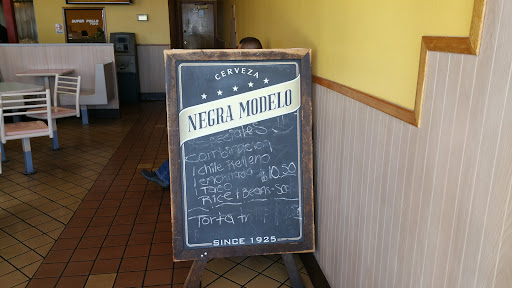 SUPER POLLO
CERVEZA
NEGRA MODELO
Especiales
Combinacion
1 chile Relleno
1 enchilada $10.50
1 Taco
Rice & Beans
Torta
SINCE 1925